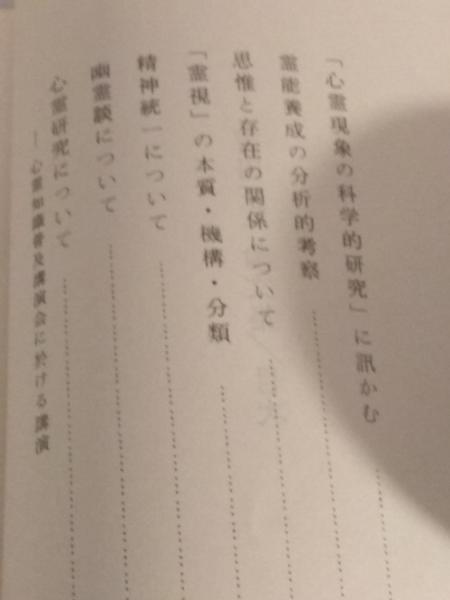 「心霊現象の科学的研究」に訊かむ
霊能養成の分析的考察
思惟と存在の関係について
「霊視」の本質・機構・分類
精神統一について
幽霊談について
心霊研究について
― 心霊知識普及講演会に於ける講演